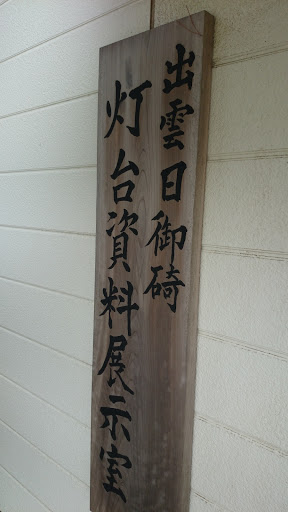 出雲日御碕
灯台資料展示室